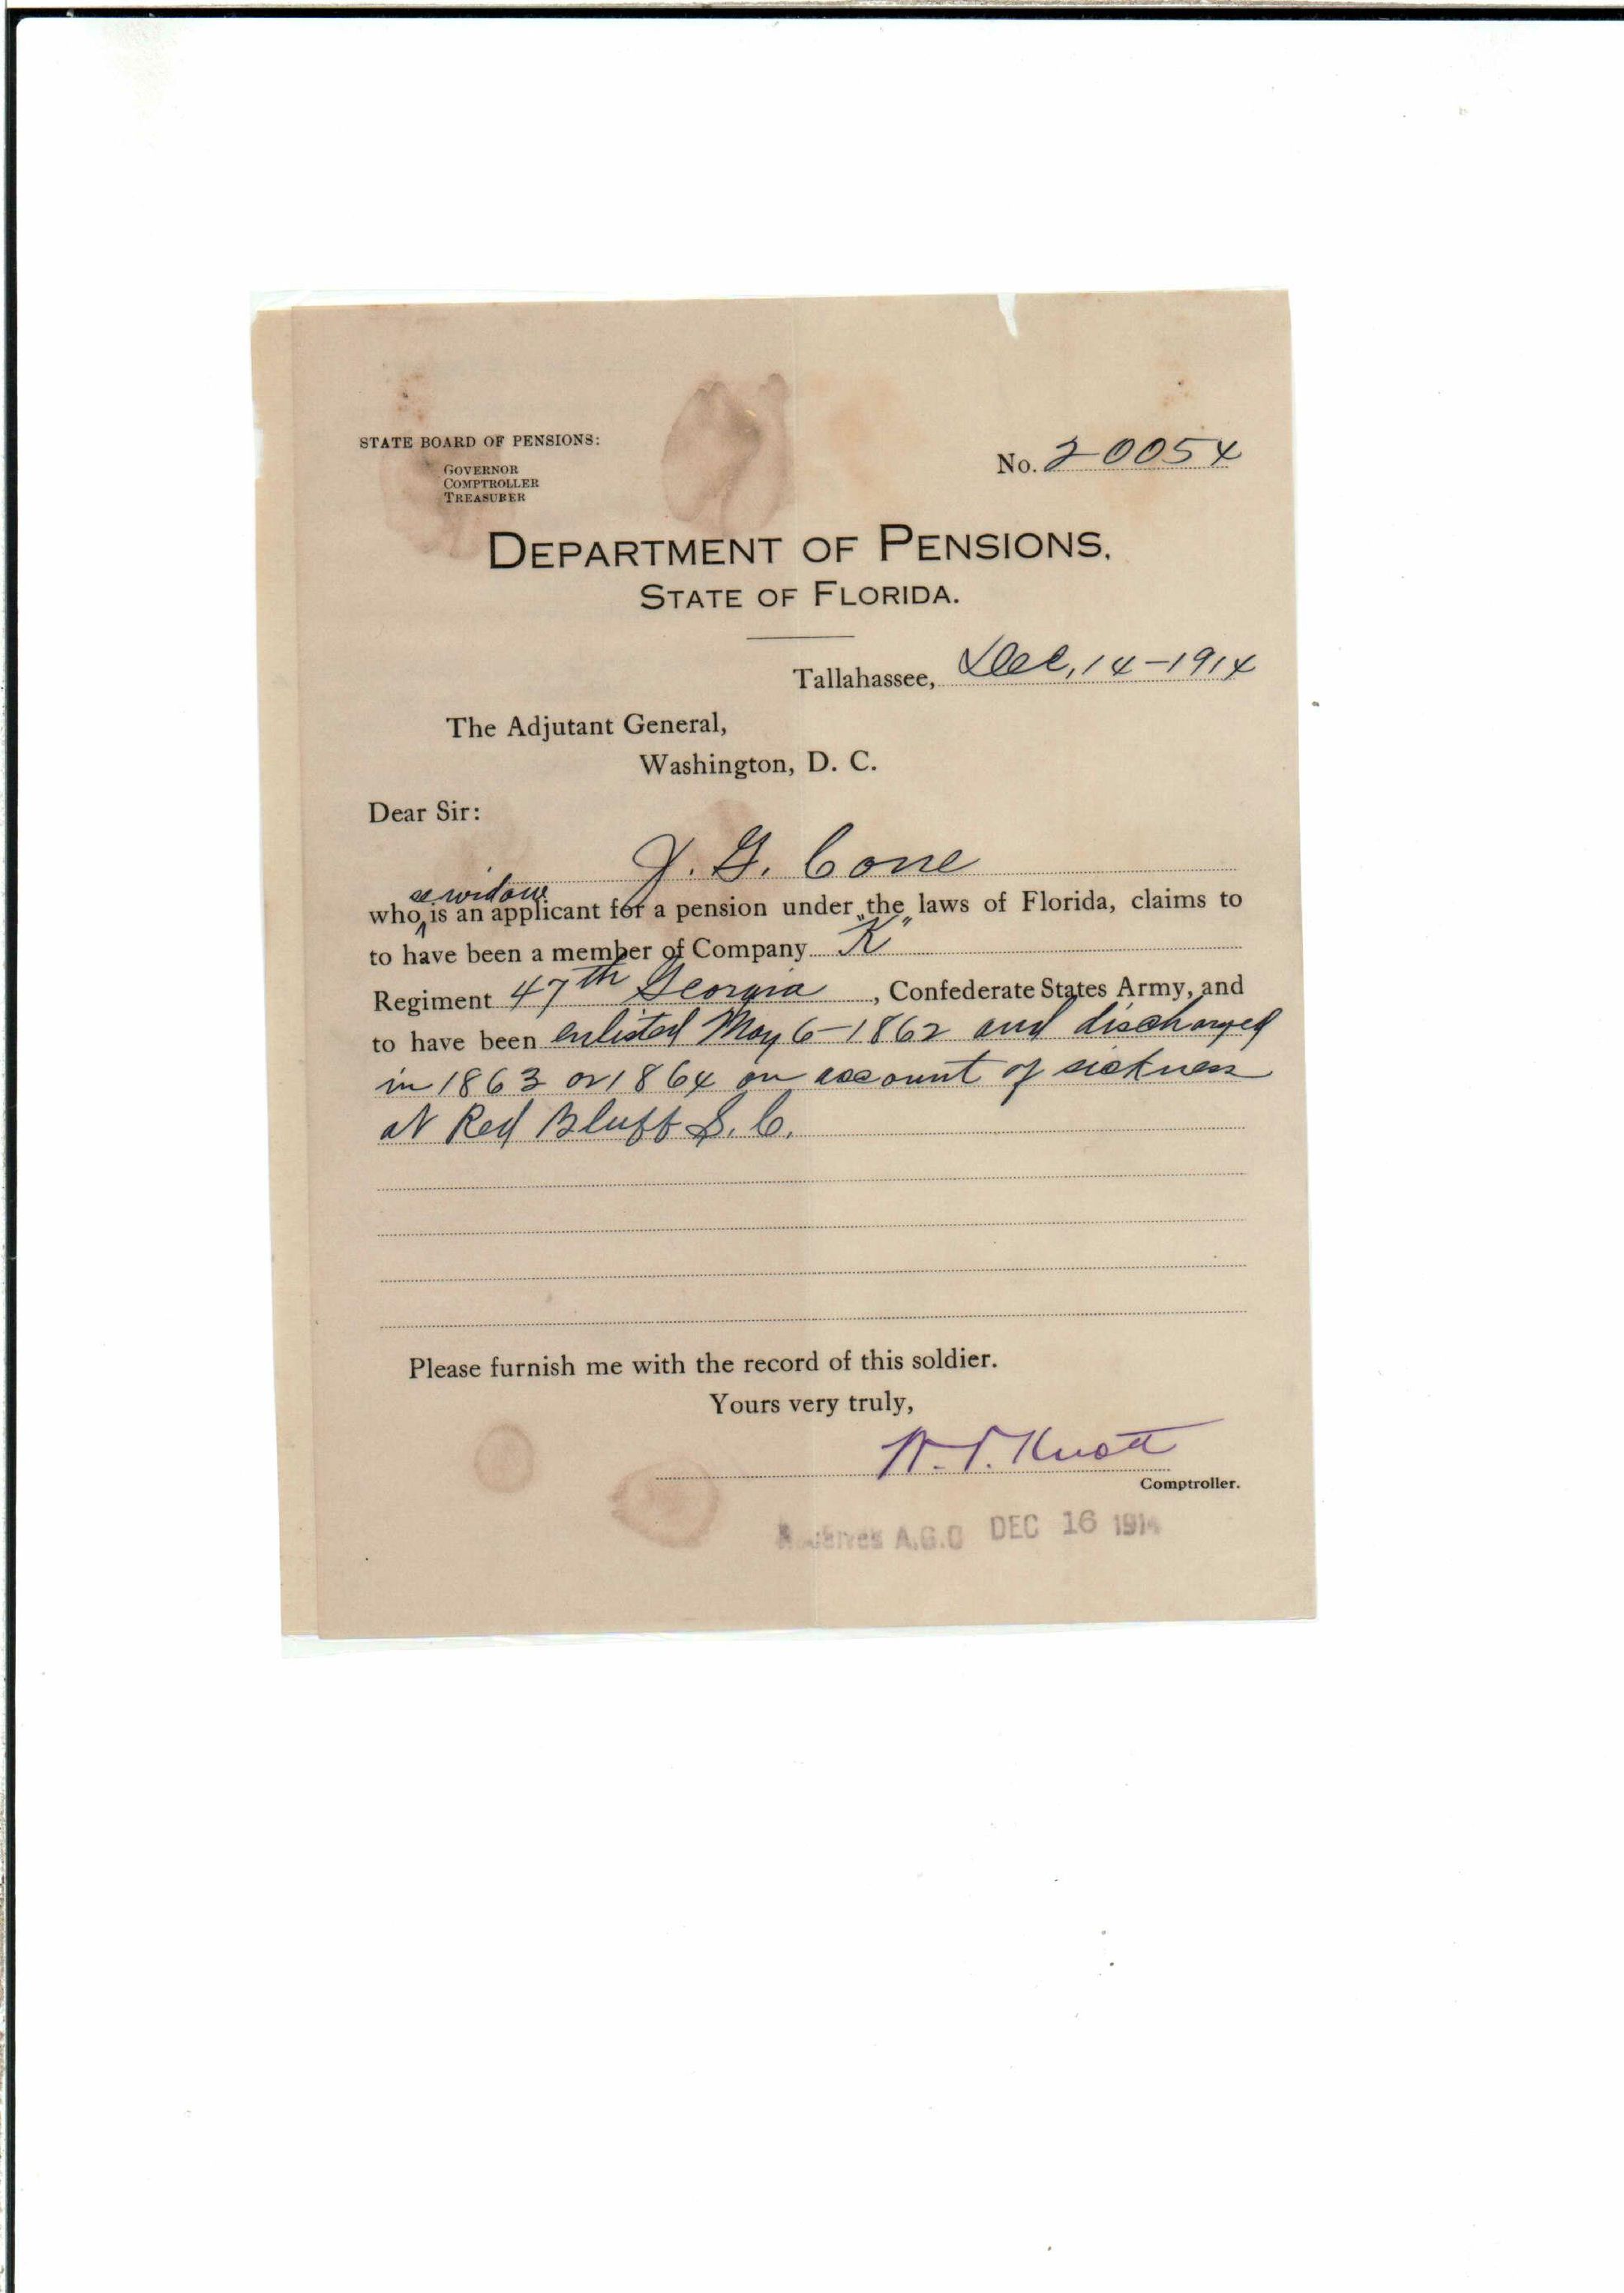 STATE BOARD OF PENSIONS:
GOVERNOR
COMPTROLLER
TREASURER
No. 20054
DEPARTMENT OF PENSIONS,
STATE OF FLORIDA.
Tallahassee, Dec, 14-1914
The Adjutant General,
Washington, D. C.
Dear Sir:
J. G. Cone
widow
who is an applicant for a pension under the laws of Florida, claims to
to have been a member of Company "K"
Regiment 47th Georgia, Confederate States Army, and
to have been enlisted May 6-1862 and discharged
in 1863 or 1864 on account of sickness
at Red Bluff S. C.
Please furnish me with the record of this soldier.
Yours very truly,
W. V. Knott
Comptroller.
A.G.O DEC 16 1914